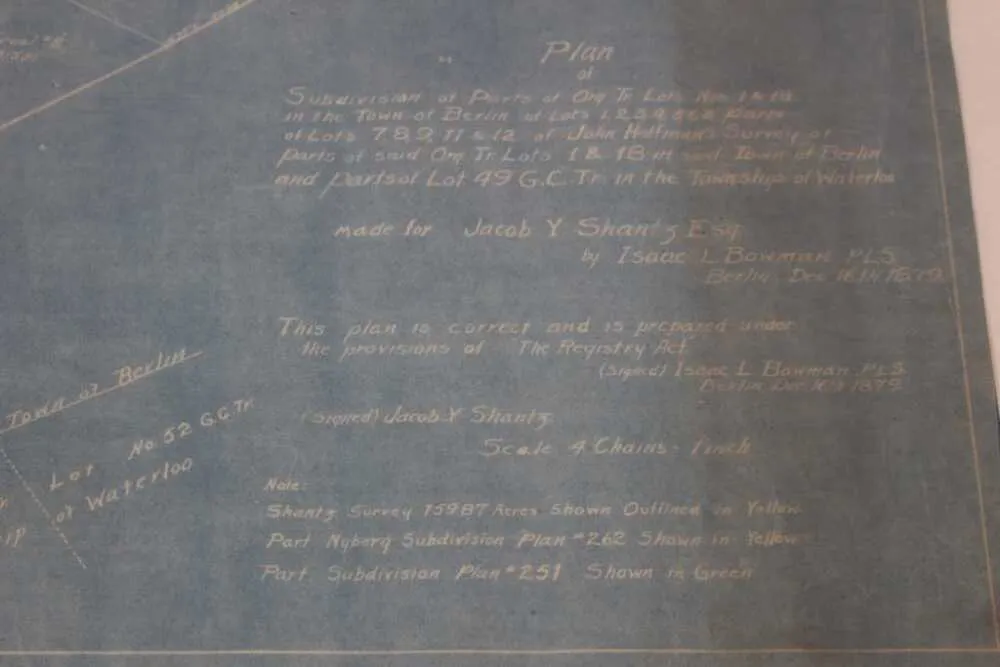 Plan
of
Subdivision of Parts of Org Tr Lots Nos 1 & 18
in the Town of Berlin of Lots 1 2 3 4 5 & 6 Parts
of Lots 7 8 9 11 & 12 of John Hoffman's Survey of
Parts of said Org Tr Lots 1 & 18 in said Town of Berlin
and parts of Lot 49 G.C.Tr. in the Township of Waterloo
made for Jacob Y Shantz Esq
by Isaac L Bowman P L S
Berlin, Dec 16th 1879
This plan is correct and is prepared under
the provisions of "The Registry Act"
(signed) Isaac L Bowman, P.L.S
Berlin Dec 1879
(signed) Jacob Y Shantz
Scale 4 Chains = 1 inch
Town of Berlin
Lot No 52 G.C.Tr
of Waterloo
Note:
Shantz Survey 159.87 Acres Shown Outlined in Yellow
Part Nyberg Subdivision Plan #262 Shown in Yellow
Part Subdivision Plan #251 Shown in Green